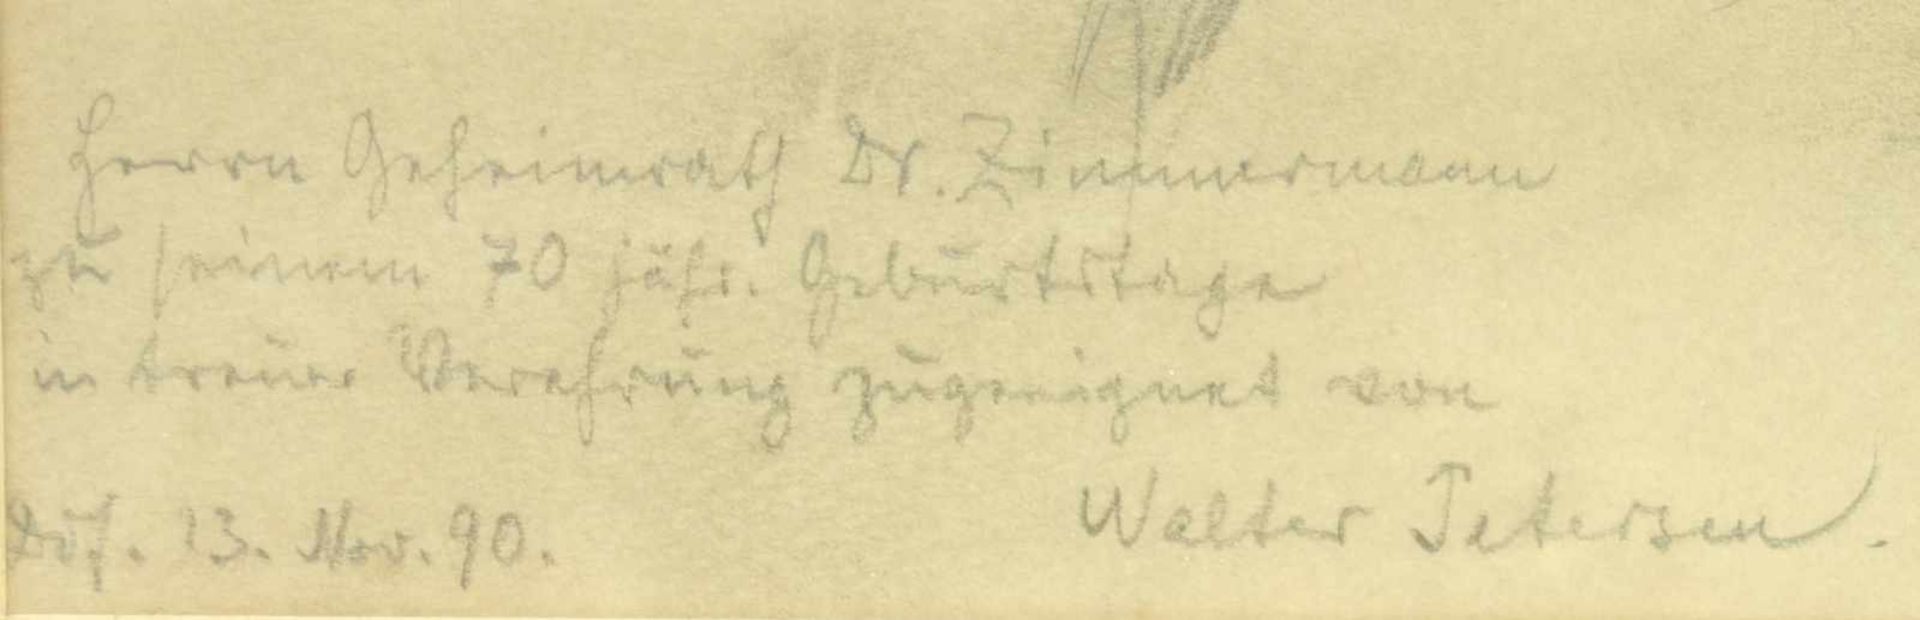 Herrn Geheimrath Dr. Zimmermann
zu seinem 70 jähr. Geburtstage
in treuer Verehrung zugeeignet von
Walter Petersen.
Düss. 13. Nov. 90.